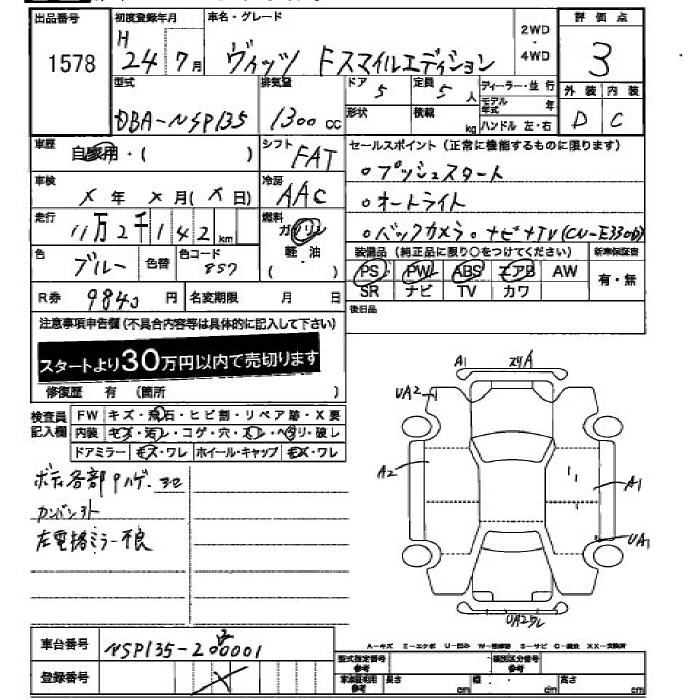 出品番号 初度登録年月 車名・グレード 2WD ・ 4WD 評価点
1578 H 24年 7月 ヴィッツ Fスマイルエディション 3
型式 排気量 ドア 5 定員 5人 ディーラー・並行 外装 内装
DBA-NSP135 1300cc 形状 積載 kg モデル年式 年 D C
ハンドル 左・右
車歴 自家用・( ) シフト FAT セールスポイント(正常に機能するものに限ります)
○プッシュスタート
車検 X年 X月(X日) 冷房 AAC ○オートライト
走行 11万2千142km 燃料 ガソリン 軽・油 ・( ) ○バックカメラ○ナビ+TV(CN-E330D)
色 ブルー 色替 色コード 8S7 装備品(純正品に限り○をつけてください) 新車保証書
PS PW ABS エアB AW 有・無
R券 9840円 名変期限 月 日 SR ナビ TV カワ
注意事項申告欄(不具合内容等は具体的に記入して下さい) 後日品
スタートより30万円以内で売切ります
修復歴 有 (箇所 )
検査員記入欄 FW キズ・飛石・ヒビ割・リペア跡・X要
内装 キズ・汚レ・コゲ・穴・スレ・ヘタリ・破レ
ドアミラー キズ・ワレ ホイール・キャップ キズ・ワレ
ボディ各部Pハゲ・
カンバンオト
左電格ミラー不良
A1
UA2
A2
A1
UA1
UA2ワレ
車台番号 NSP135-2000001
登録番号
A-キズ E-エクボ U-凹み W-補修跡 S-サビ C-腐食 XX-交換済
型式指定番号 参考 類別区分番号 参考
車庫証明用 参考 長さ cm 幅 cm 高さ cm